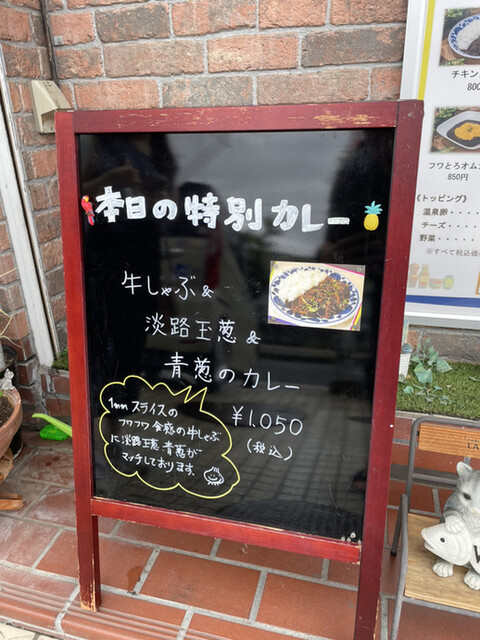 本日の特別カレー
牛しゃぶ&
淡路玉葱&
青葱のカレー
¥1,050
(税込)
1mmスライスの
フワフワ食感の牛しゃぶ
に淡路玉葱、青葱が
マッチしております。
チキン
800
フワとろオム
850円
《トッピング
温泉卵・・・・
チーズ・・・・
野菜・・・・・
※すべて税込価